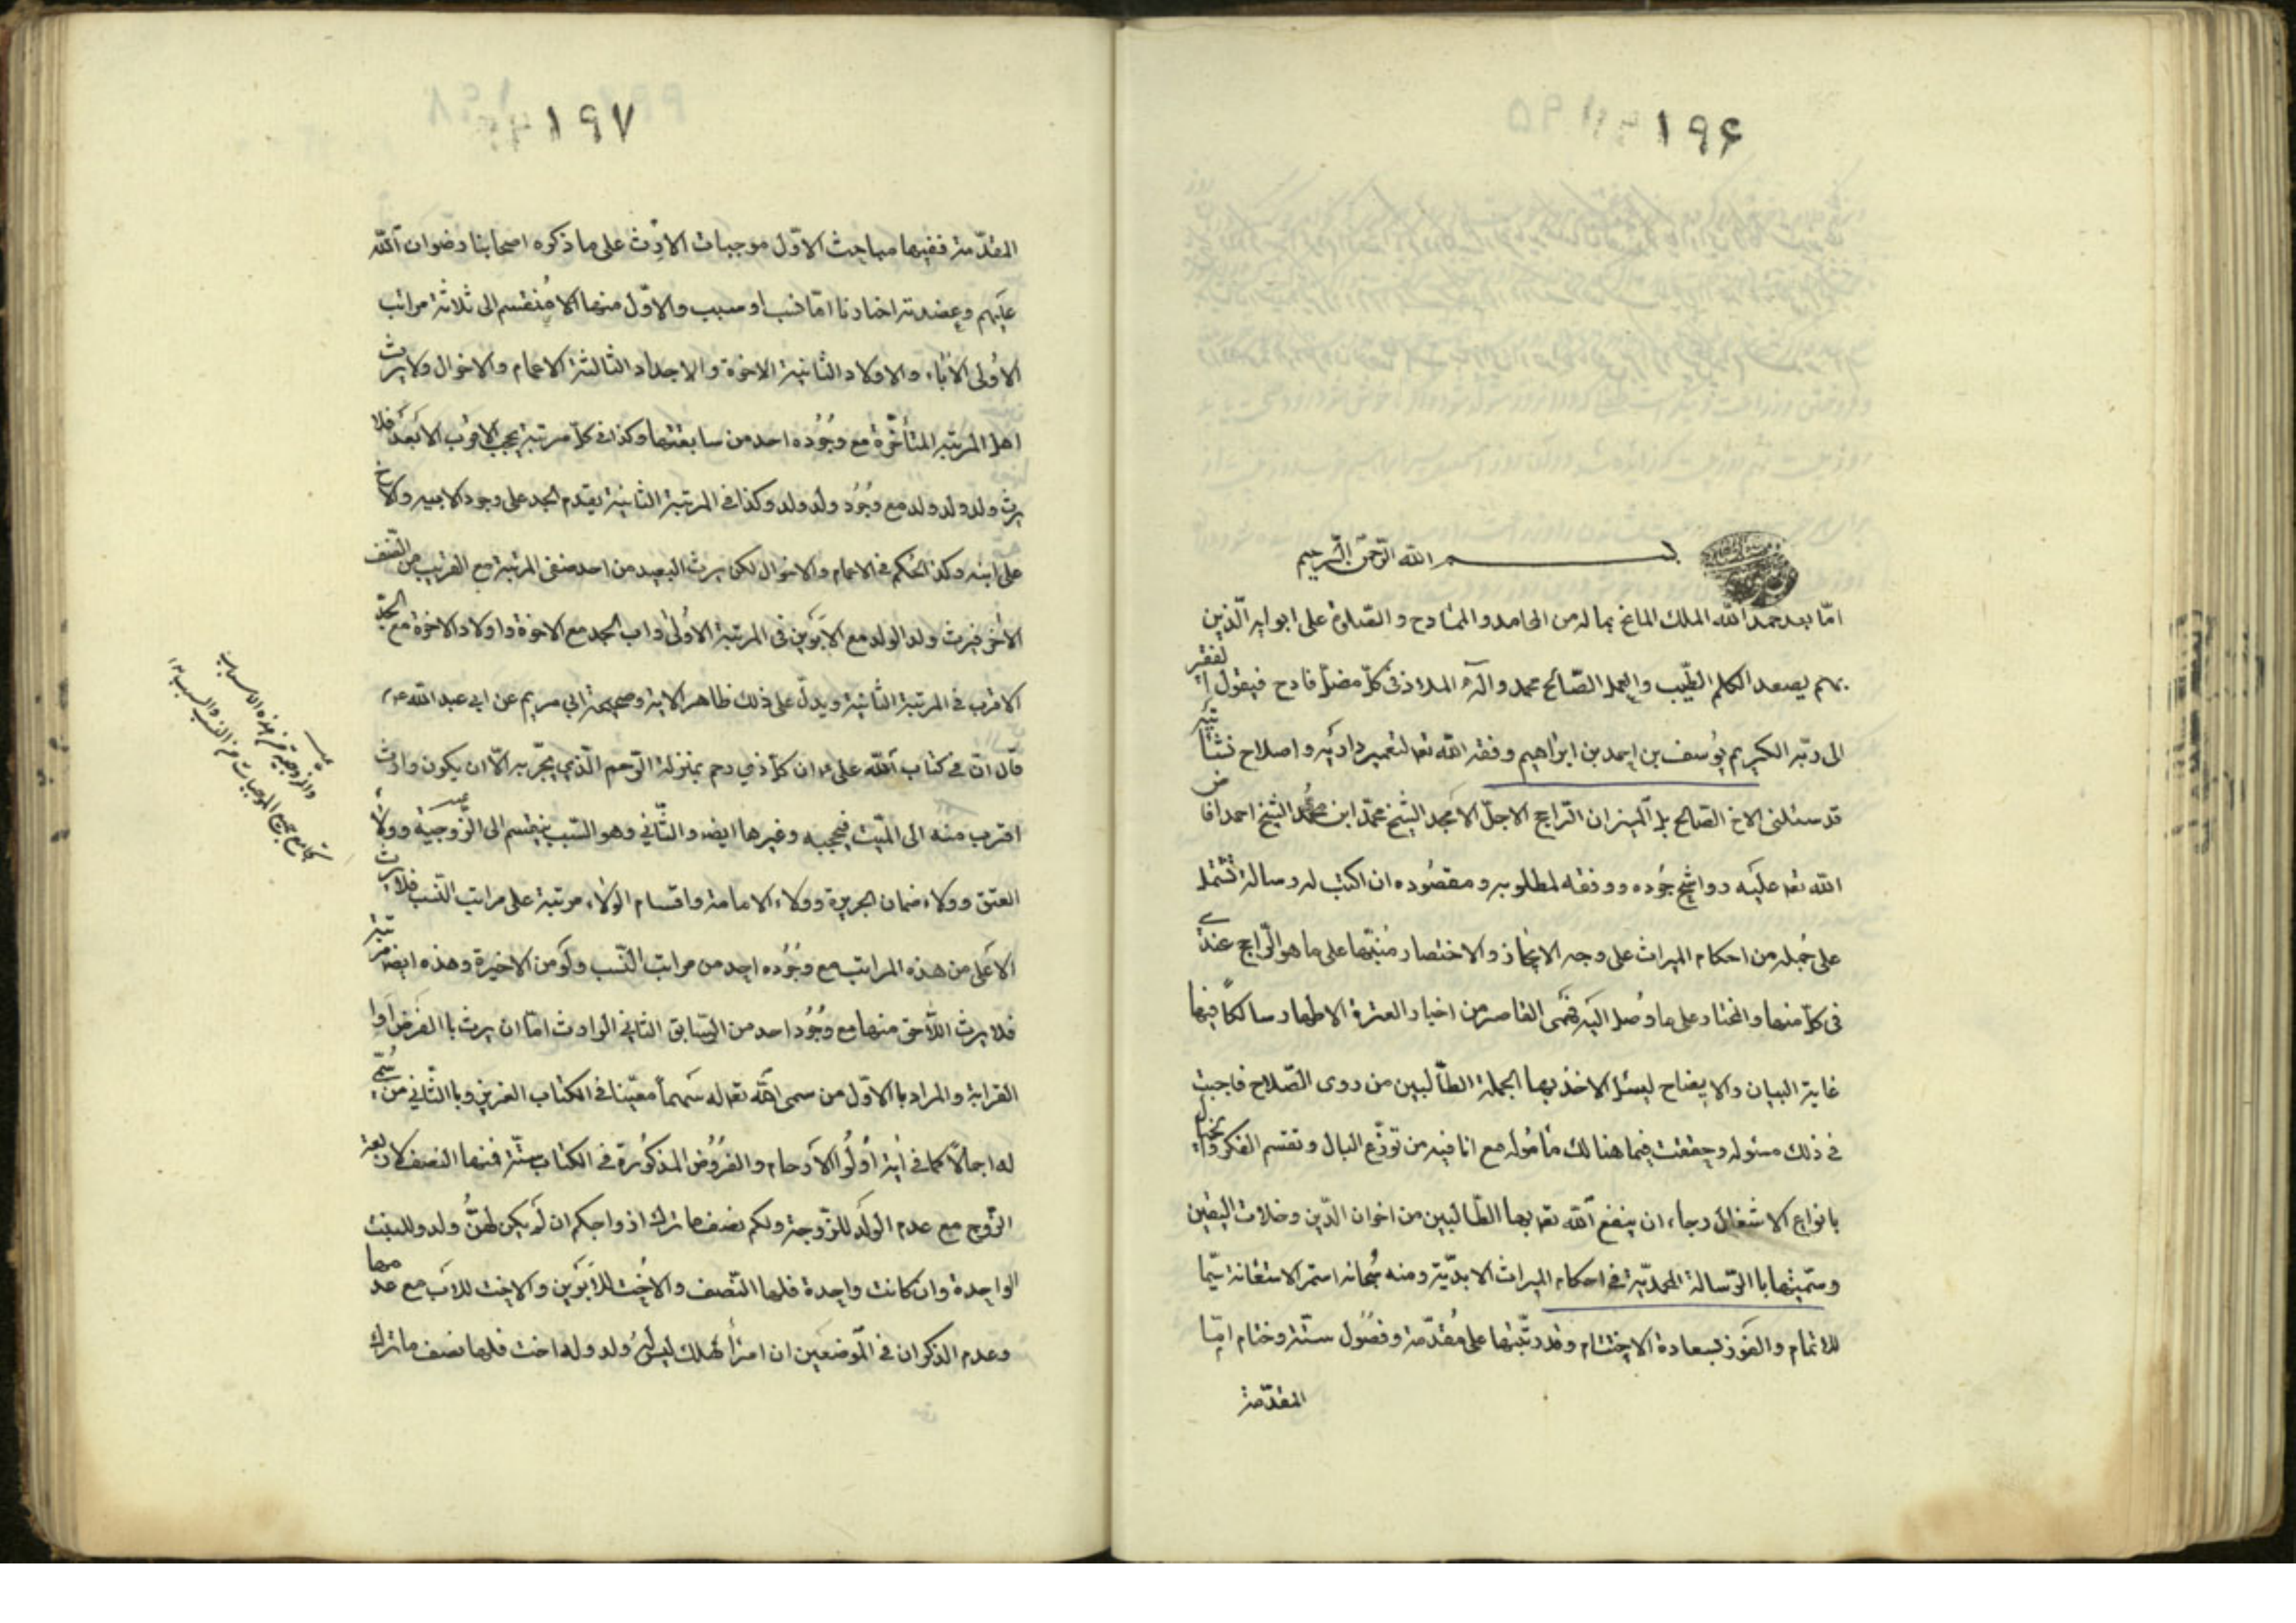 ۱۹۶
بسم الله الرحمن الرحيم
امّا بعد حمد الله الملك المانح بماله من المحامد والممادح والصّلوة على ابوابه الّذين
بهم يصعد الكلم الطّيب والعمل الصّالح محمد وآله الملاذ فى كلّ مضلّ فادح فيقول الفقير
الى ربّه الكريم يُوسف بن احمد بن ابراهيم وفقه الله تعا لتعمير داريه واصلاح نشأتيه
قد سئلنى الاخ الصّالح بل الميزان الرّاجح الاجلّ الامجد الشّيخ محمّد ابن الشّيخ احمد افاض
الله تعا عليه رواشح جُوده ووفقه لمطلوبه ومقصُوده ان اكتب له رسالة تشتمل
على جُملة من احكام الميراث على وجه الايجاز والاختصار مُنبّها على ما هو الرّاجح عندى
فى كلّ منها والمختار على ما وُصل اليه فهمى القاصر من اخبار العترة الاطهار سالكاً فيها
غاية البيان والايضاح ليسئل الاخذ بها لجملة الطّالبين من ذوى الصّلاح فاجبت
فى ذلك مسئوله وحققت فيما هنالك مأمُوله مع انا فيه من توزّع البال وتقسم الفكر
بانواع الاشغال رجاء ان ينفع الله تعا بها الطّالبين من اخوان الدّين وخلان اليقين
وسمّيتها باالرّسالة المحمديّة فى احكام الميراث الابديّة ومنه سُبحانه استمر الاستعانة سيّما
للاتمام والفوز بسعادة الاختتام وقد رتّبتها على مُقدّمة وفصُول ستّة وختام امّا
المقدّمة
۱۹۷
المقدّمة ففيها مباحث الاوّل موجبات الارث على ما ذكره اصحابنا رضوان الله
عليهم وعضدته اخبارنا امّا نسب او سبب والاوّل منهما مُنقسم الى ثلاثة مراتب
الاُولى الاٰباء والاولاد الثانية الاخوة والاجداد الثالثة الاعمام والاخوال ولا يرث
اهل المرتبة المتأخّرة مع وجُود احد من سابقتها وكذا فى كلّ مرتبة يحجب الاقرب الابعد فلا
يرث ولد ولد ولد مع وجُود ولد ولد وكذا فى المرتبة الثانية يقدم الجد على وجود الابيه والاخ
على ابنه وكذا الحُكم فى الاعمام والاخوال لكن يرث البعيد من احد صنفى المرتبة مع القريب من الصّنف
الاخر فيرث ولد الولد مع الابوين فى المرتبة الاُولى واب الجد مع الاخوة واولاد الاخوة مع الجدّ
الاقرب فى المرتبة الثانية ويدلّ على ذلك ظاهر الاية وصحيحة ابى مريم عن ابى عبد الله ع
قال انّ فى كتاب الله على ع ان كلّ ذي رحم بمنزلة الرّحم الّذي يجرّ به الّا ان يكون وارث
اقرب منه الى الميّت فيحجبه وغيرها ايضا والثّاني وهو السّبب ينقسم الى الزّوجيّة وولاء
العتق وولاء ضمان الجريرة وولاء الامامة واقسام الولاء مرتبة على مراتب النّسب فلا يرث
الاعلى من هذه المراتب مع وجُود احد من مراتب النّسب ولو من الاخيرة وهذه ايضا مرتبة
فلا يرث اللّاحق منها مع وجُود احد من السّابق الثانى الوارث امّا ان يرث باالفرض او با
القرابة والمراد باالاوّل من سمى الله تعا له سهماً معيّنا فى الكتاب العزيز وباالثّاني من سُمّى
له اجمالاً كما فى اٰية اُولُوا الارحام والفرُوض المذكُورة فى الكتاب ستّة فمنها النصف لاربعة
الزّوج مع عدم الولد للزّوجة ولكم نصف ما ترك ازواجكم ان لم يكن لهنّ ولد وللبنت
الواحدة وان كانت واحدة فلها النّصف والاُخت للابوين والاخت للاب مع عدمها
وعدم الذكران فى الموضعين ان امرؤا هلك ليس لهُ ولد وله اخت فلها نصف ما ترك